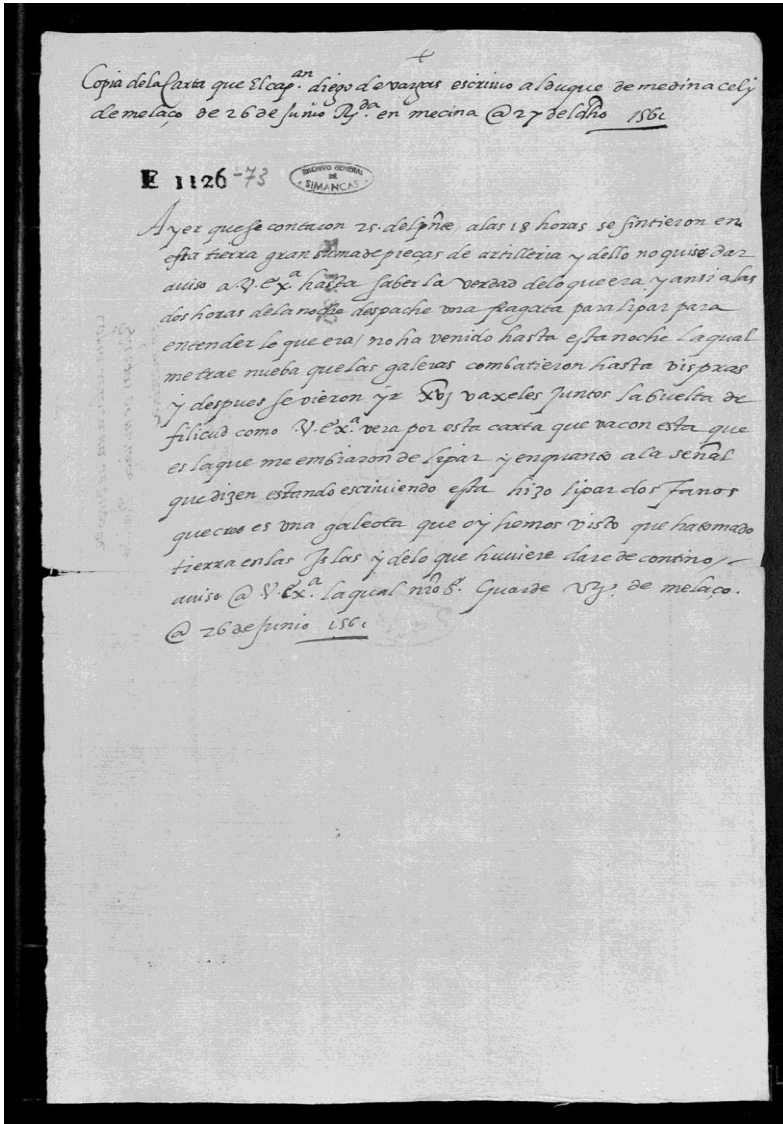 Copia de la Carta que El cap.an diego de vargas escrivio al duque de medinacelj
de melaço de 26 de Junio Rj.da en mecina @ 27 del dho 1561
E 1126 -73
ARCHIVO GENERAL
DE
SIMANCAS
Ayer que se contaron 25. del pñte a las 18 horas se sintieron en
esta tierra gran suma de pieças de artilleria y dello no quise dar
aviso a .V. Exª. hasta saber la verdad de lo que era y ansi a las
dos horas de la noche despache vna fragata para lipar para
entender lo que era / no ha venido hasta esta noche la qual
me trae nueba que las galeras combatieron hasta vispras
y despues se vieron yr xvj vaxeles Juntos la buelta de
filicud como .V. Exª. vera por esta carta que va con esta que
es la que me embiaron de lipar y en quanto a la señal
que dizen estando escriviendo esta hizo lipar dos fanos
que creo es vna galeota que oy hemos visto que ha tomado
tierra en las Jslas y de lo que huviere dare de contino /
aviso @ V. Exª. la qual nrõ S.r Guarde de melaço.
@ 26 de Junio 1561